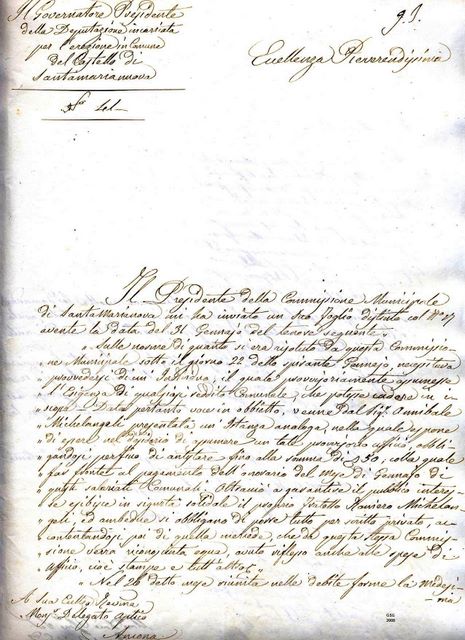 Il Governatore Presidente
della Deputazione incaricata
per l'erezione in Comune
del Castello di
Santamarianova
93.
Eccellenza Reverendissima
Il Presidente della Commissione Municipale
di SantaMarianova mi ha inviato un suo foglio distinto col N° 27
avente la data del 31 Gennajo del tenore seguente
" Sulle norme di quanto si era risoluto da questa Commissio-
" ne Municipale sotto il giorno 22 dello spirante Gennajo, acciò si
" provvedesse di un Individuo, il quale provvisoriamente assumesse
" l'Esigenza di qualsiasi reddito Comunale, che potesse cadere in
" Data pertanto voce in obbietto, venne dal Sig. Annibale
" Michelangeli presentata un'Istanza analoga, nella quale espone
" di essere nel desiderio di assumere un tale provvisorio ufficio, obbli-
" gandosi perfino di anticipare fino alla somma di 30, colla quale
" far fronte al pagamento dell'onorario del mese di Gennajo di
" questi salariati Comunali. Oltracciò a garantire il pubblico interes-
" se esibisce in sigurtà solidale il proprio Fratello Raniero Michelan-
" geli, ed ambedue si obbligano di porre tutto per scritto privato, ac-
" contentandosi poi di quella mercede, che da questa stessa Commis-
" sione verrà riconosciuta equa, avuto riflesso anche alle spese di
" ufficio, cioè stampe e tutt'altro.
" Nel 26 detto mese riunita nelle debite forme la medesi-
ma
A Sua Eccellza Revma
Monsr Delegato Aplico
Ancona
GSG
2008